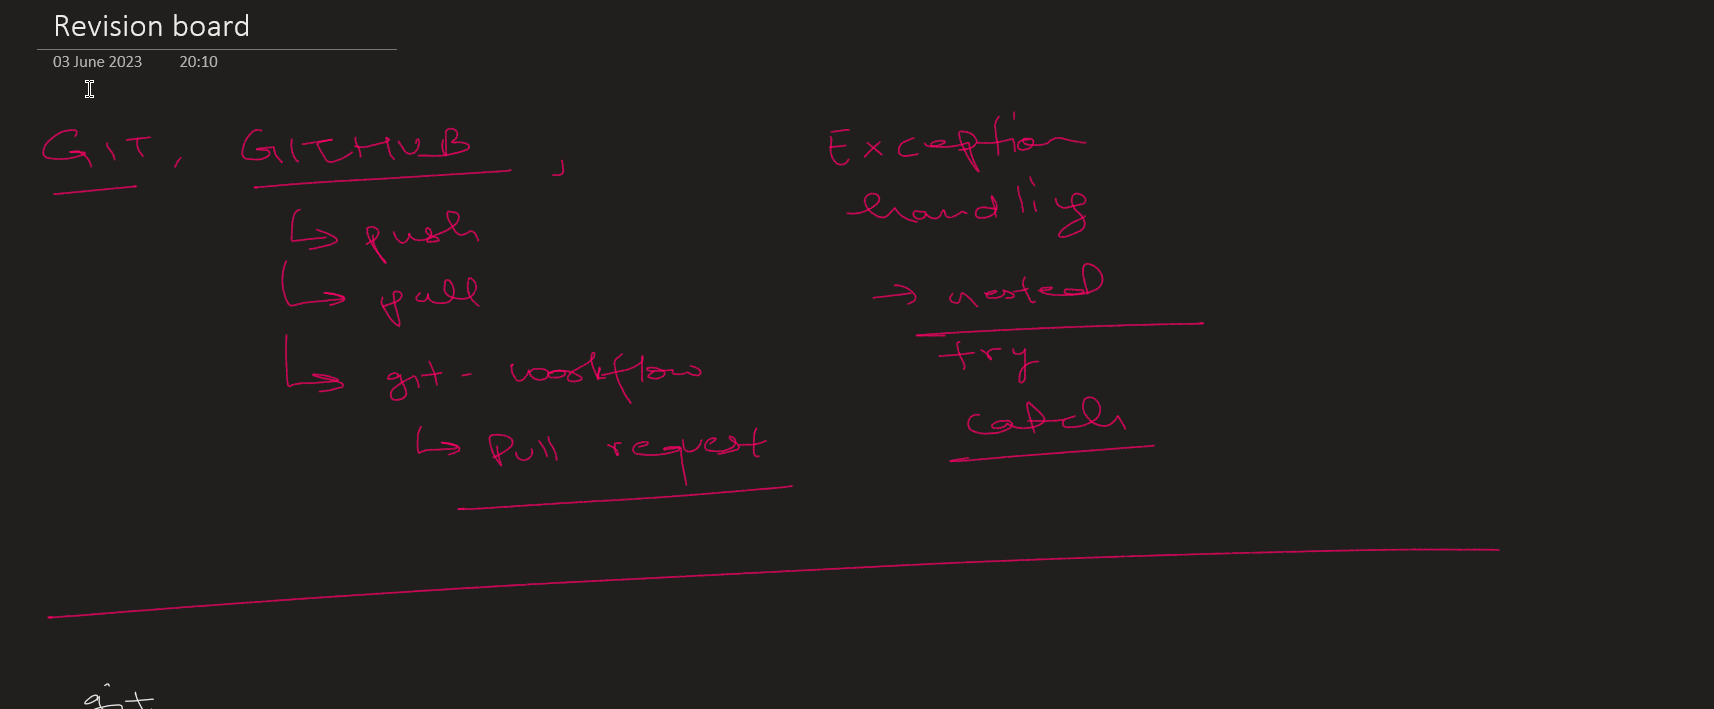 Revision board
03 June 2023 20:10
GIT, GITHUB,
push
pull
git - workflow
Pull request
Exception
handling
nested
try
catch
git